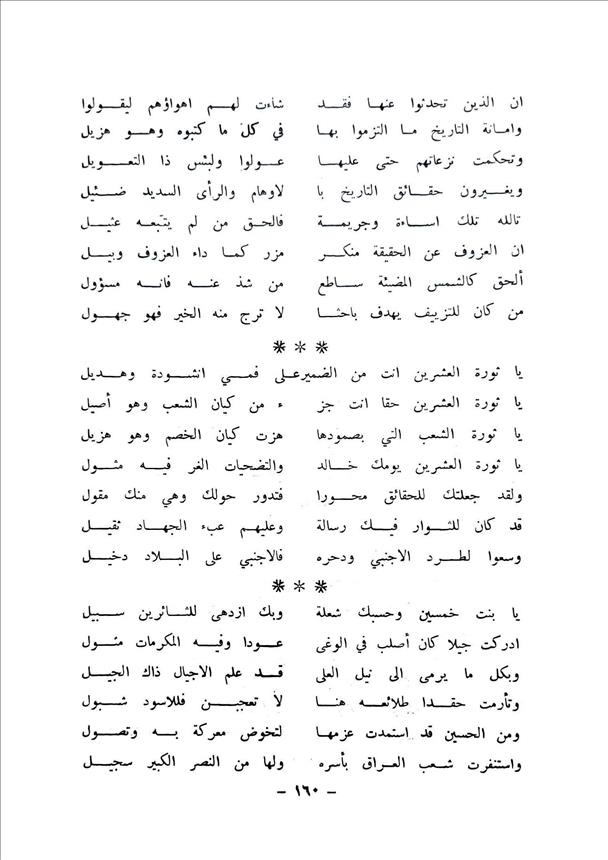 ان الذين تحدثوا عنها فقد شاءت لهم اهواؤهم ليقولوا
وامانة التاريخ ما التزموا بها في كل ما كتبوه وهو هزيل
وتحكمت نزعاتهم حتى عليها عولوا ولبئس ذا التعويل
ويغيرون حقائق التاريخ با لاوهام والرأى السديد ضئيل
تالله تلك اساءة وجريمة فالحق من لم يتبعه عثيل
ان العزوف عن الحقيقة منكر مزر كما داء العزوف وبيل
ألحق كالشمس المضيئة ساطع من شذ عنه فانه مسؤول
من كان للتزييف يهدف باحثا لا ترج منه الخير فهو جهول
* * *
يا ثورة العشرين انت من الضميرعلى فمي انشودة وهديل
يا ثورة العشرين حقا انت جز ء من كيان الشعب وهو أصيل
يا ثورة الشعب التي بصمودها هزت كيان الخصم وهو هزيل
يا ثورة العشرين يومك خالد والتضحيات الغر فيه مثول
ولقد جعلتك للحقائق محورا فتدور حولك وهي منك مقول
قد كان للثوار فيك رسالة وعليهم عبء الجهاد ثقيل
وسعوا لطرد الاجنبي ودحره فالاجنبي على البلاد دخيل
* * *
يا بنت خمسين وحسبك شعلة وبك ازدهى للثائرين سبيل
ادركت جيلا كان أصلب في الوغى عودا وفيه المكرمات مثول
وبكل ما يرمى الى نيل العلى قد علم الاجيال ذاك الجيل
وتأرمت حقدا طلائعه هنا لا تعجبن فللاسود شبول
ومن الحسين قد استمدت عزمها لتخوض معركة به وتصول
واستنفرت شعب العراق بأسره ولها من النصر الكبير سجيل
- ١٦٠ -